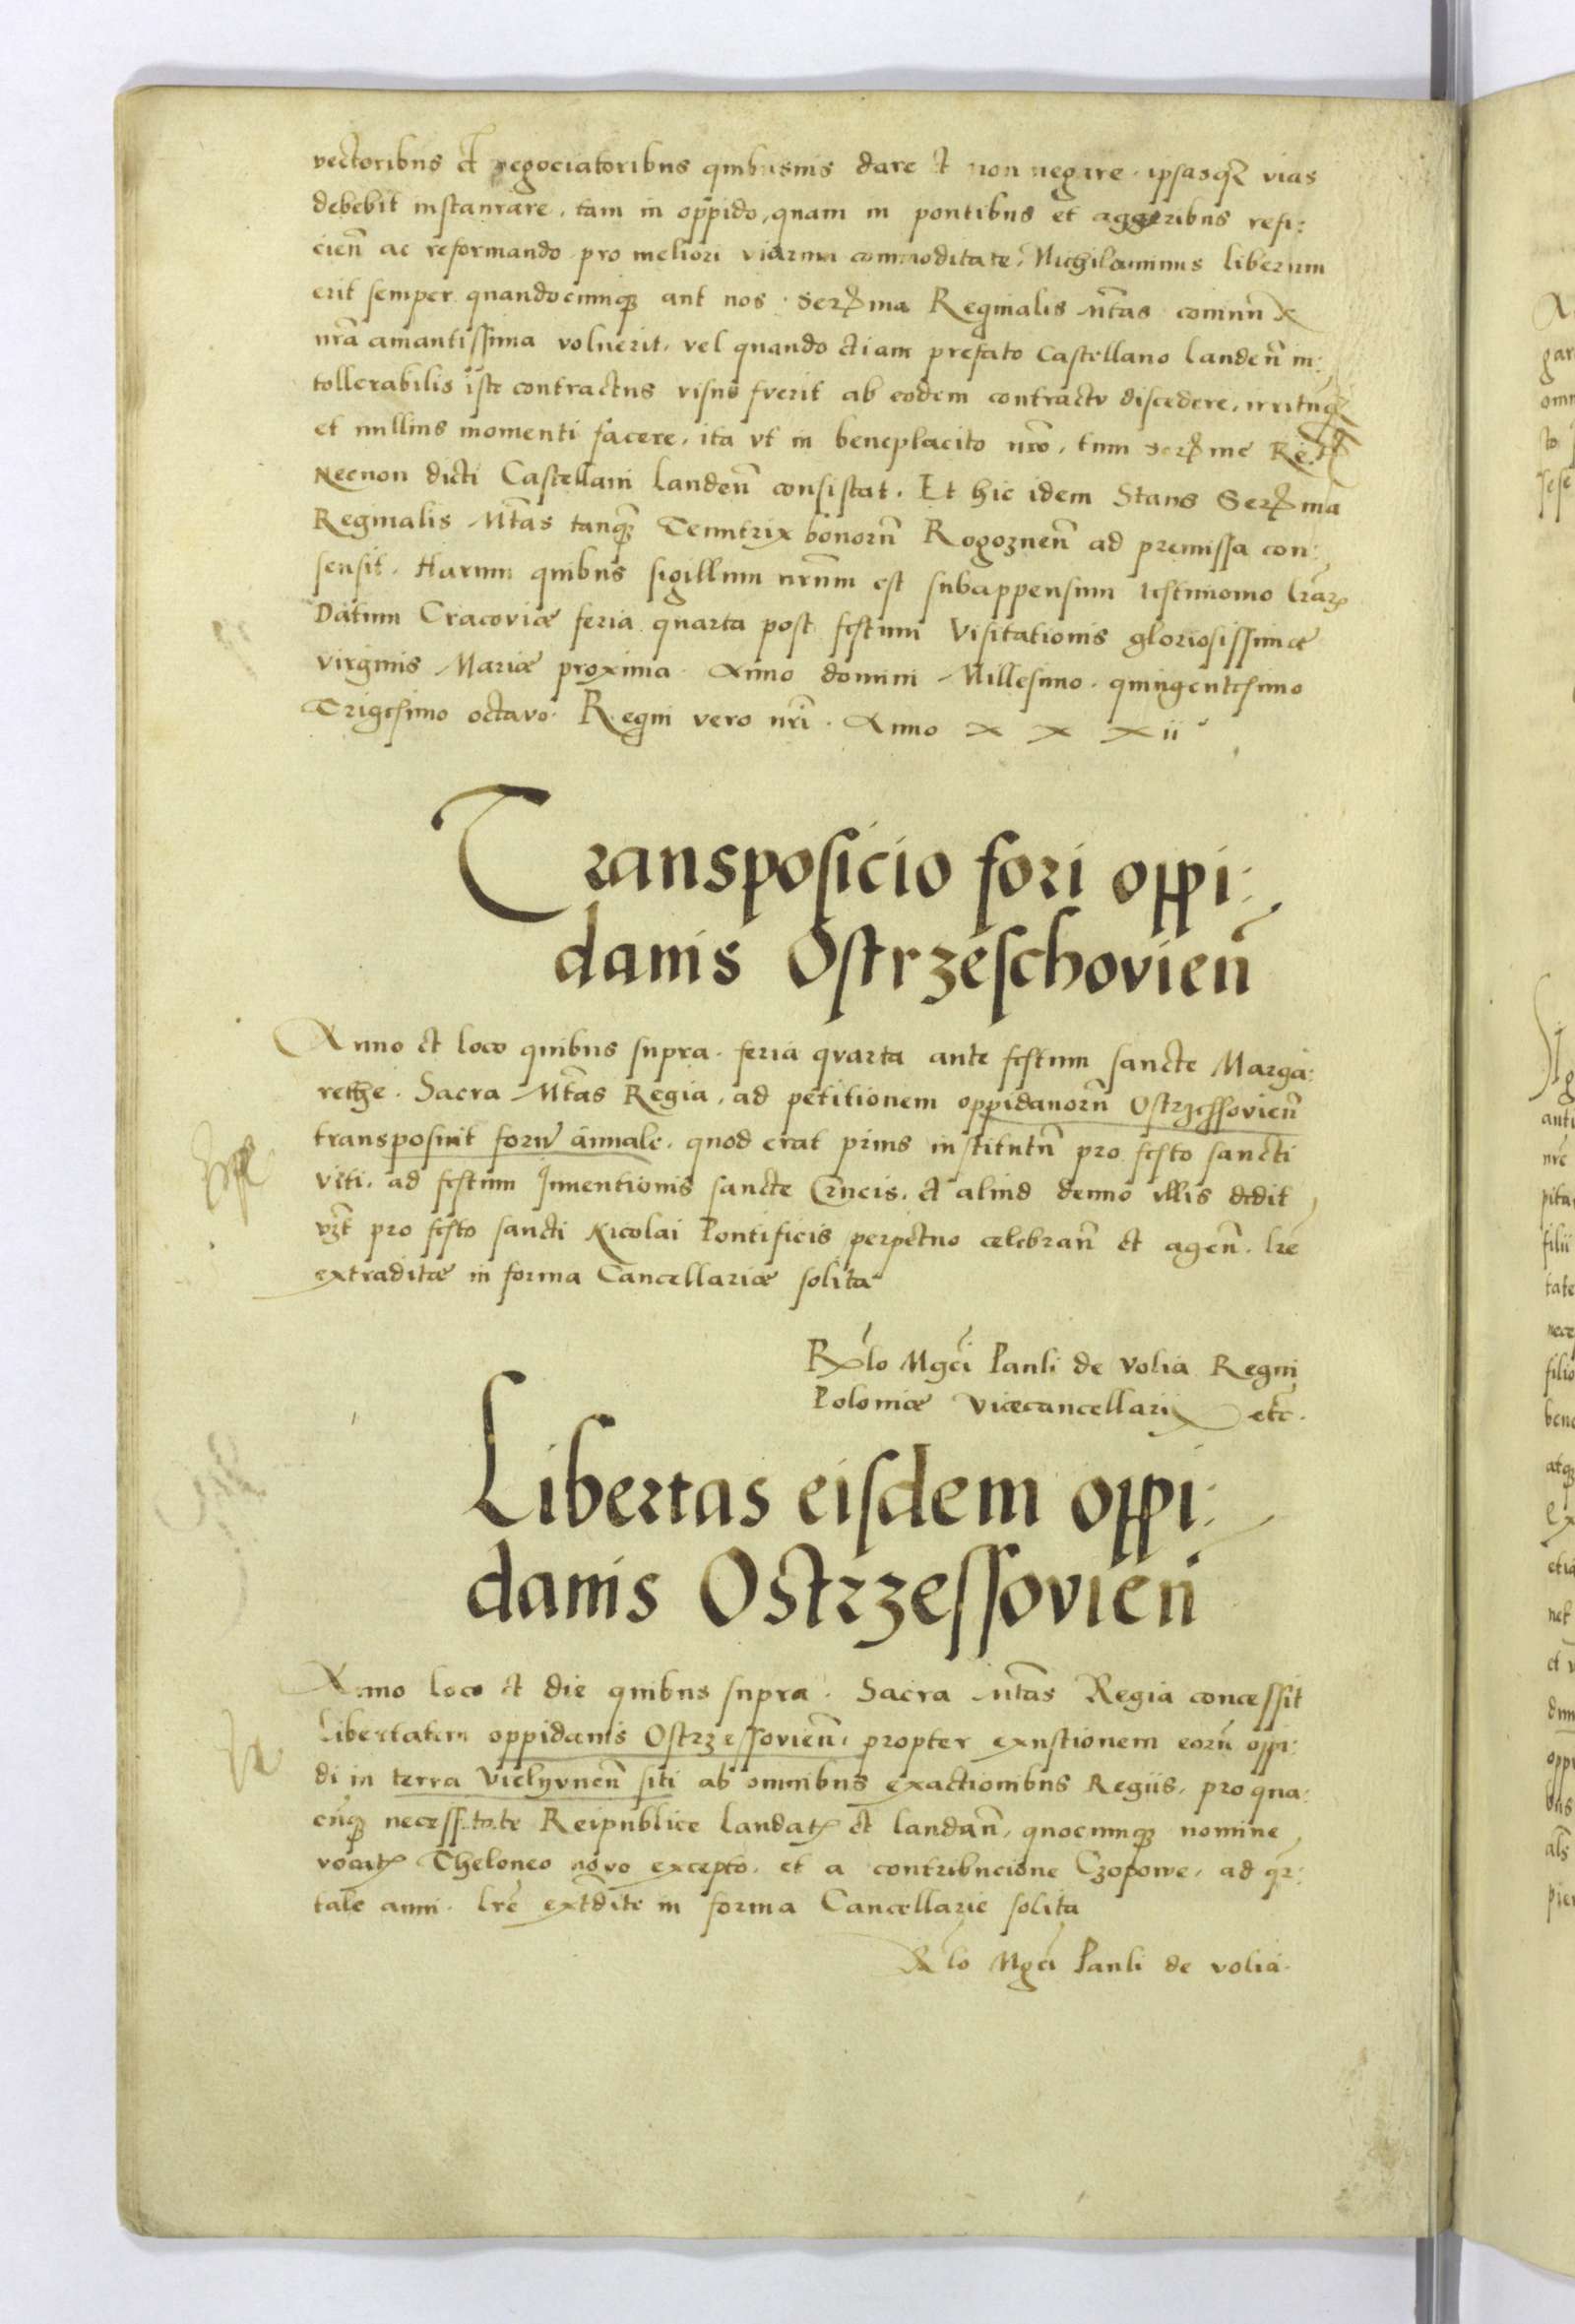 vectoribus et negociatoribus quibusuis dare et non negare. ipsasqȝ vias
debebit instaurare, tam in oppido, quam in pontibus et aggeribus refi:
cien̄ ac reformando pro meliori viarum commoditate, Nichilominus liberum
erit semper quandocunqȝ aut nos. Serꝰma Reginalis Mt̄as coniunx
nr̄a amantissima voluerit, vel quando etiam prefato Castellano Landen̄ in:
tollerabilis iste contractus visus fuerit ab eodem contractu discedere, irritūqȝ
et nullius momenti facere, ita vt in beneplacito nr̄o, tum serꝰme Re
Necnon dicti Castellani Landen̄ consistat. Et hic idem Stans Serꝰma
Reginalis Mt̄as tanqȝ Tenutrix bonorū Rogoznen̄ ad premissa con:
sensit. Harum quibus sigillum nr̄um est subappensum testimonio lr̄aꝝ
Datum Cracoviæ feria quarta post festum Visitationis gloriosissimæ
virginis Mariæ proxima. Anno domini Millesimo quingentesimo
Trigesimo octavo. Regni vero nr̄i. Anno x x x ii
Transposicio fori oppi:
danis Ostrzeschovien̄
Anno et loco quibus supra. feria qvarta ante festum sancte Marga:
rethe. Sacra Mt̄as Regia, ad petitionem oppidanorū Ostrzessovien̄
transposuit forū annale, quod erat prius institutū pro festo sancti
viti, ad festum Inuentionis sancte Crucis, et aliud denuo illis dedit
vȝt pro festo sancti Nicolai Pontificis perpetuo celebran̄ et agen̄. lr̄e
extraditæ in forma Cancellariæ solita
Rlo Mgci Pauli de Volia Regni
Poloniæ Vicecancellarii etc̄.
Libertas eisdem oppi:
danis Ostrzessovien̄
Anno loco et die quibus supra. Sacra Mt̄as Regia concessit
Libertatem oppidanis Ostrzessovien̄, propter exustionem eorū oppi:
di in terra Vielyvnen̄ siti ab omnibus exactionibus Regiis, pro qua:
cūqȝ necessitate Reipublice laudatꝭ et laudan̄, quocunqȝ nomine
vocatꝭ Theloneo novo excepto, et a contribucione Czopowe, ad qr̄:
tale anni. lr̄e ext̄dite in forma Cancellarie solita
Rlo Mgci Pauli de volia.